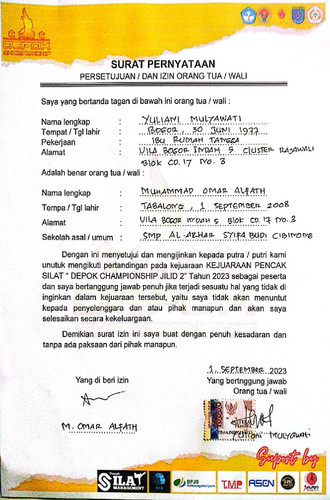 SURAT PERNYATAAN
PERSETUJUAN / DAN IZIN ORANG TUA / WALI
Saya yang bertanda tagan di bawah ini orang tua / wali :
Nama lengkap : YULIANI MULYAWATI
Tempat / Tgl lahir : BOGOR, 30 JUNI 1977
Pekerjaan : IBU RUMAH TANGGA
Alamat : VILA BOGOR INDAH 5 CLUSTER RAJAWALI
BLOK CD.17 NO. 3
Adalah benar orang tua / wali :
Nama lengkap : MUHAMMAD OMAR ALFATH
Tempa / Tgl lahir : TABALONG, 1 SEPTEMBER 2008
Alamat : VILA BOGOR INDAH 5 BLOK CD 17 NO. 3
Sekolah asal / umum : SMP AL-AZHAR SYIFA BUDI CIBINONG
Dengan ini menyetujui dan mengijinkan kepada putra / putri kami
untuk mengikuti pertandingan pada kejuaraan KEJUARAAN PENCAK
SILAT " DEPOK CHAMPIONSHIP JILID 2" Tahun 2023 sebagai peserta
dan saya bertanggung jawab penuh jika terjadi sesuatu hal yang tidak di
inginkan dalam kejuaraan tersebut, yaitu saya tidak akan menuntut
kepada penyelenggara dan atau pihak manapun dan akan saya
selesaikan secara kekeluargaan.
Demikian surat izin ini saya buat dengan penuh kesadaran dan
tanpa ada paksaan dari pihak manapun.
1 SEPTEMBER 2023
Yang di beri izin
Yang bertinggung jawab
Orang tua / wali
M. OMAR ALFATH
YULIANI MULYAWATI
Suport by
SILAT
MANAGEMENT
BPJS
TMP
ASCN